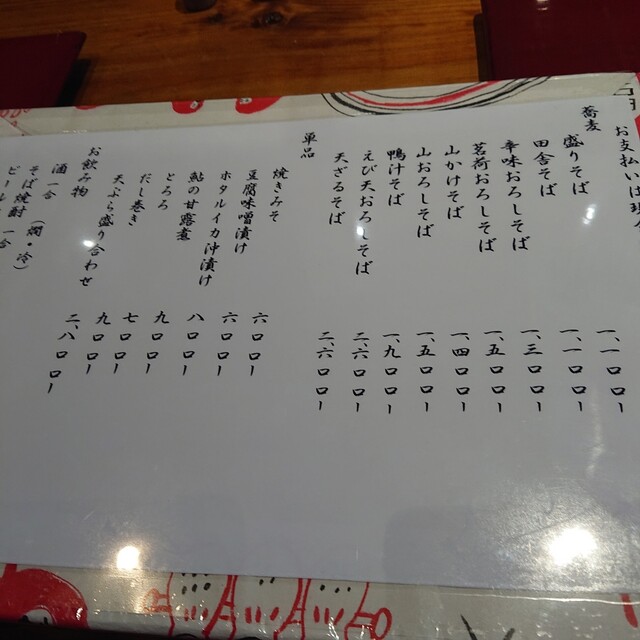 お支払いは現
蕎麦
盛りそば 一、一〇〇ー
田舎そば 一、一〇〇ー
辛味おろしそば 一、三〇〇ー
茗荷おろしそば 一、五〇〇ー
山かけそば 一、四〇〇ー
山おろしそば 一、五〇〇ー
鴨汁そば 一、九〇〇ー
えび天おろしそば 二、六〇〇ー
天ざるそば 二、六〇〇ー
単品
焼きみそ 六〇〇ー
豆腐味噌漬け 六〇〇ー
ホタルイカ沖漬け 八〇〇ー
鮎の甘露煮 九〇〇ー
とろろ 七〇〇ー
だし巻き 九〇〇ー
天ぷら盛り合わせ 二、八〇〇ー
お飲み物
酒 一合 (燗・冷)
そば焼酎 一合